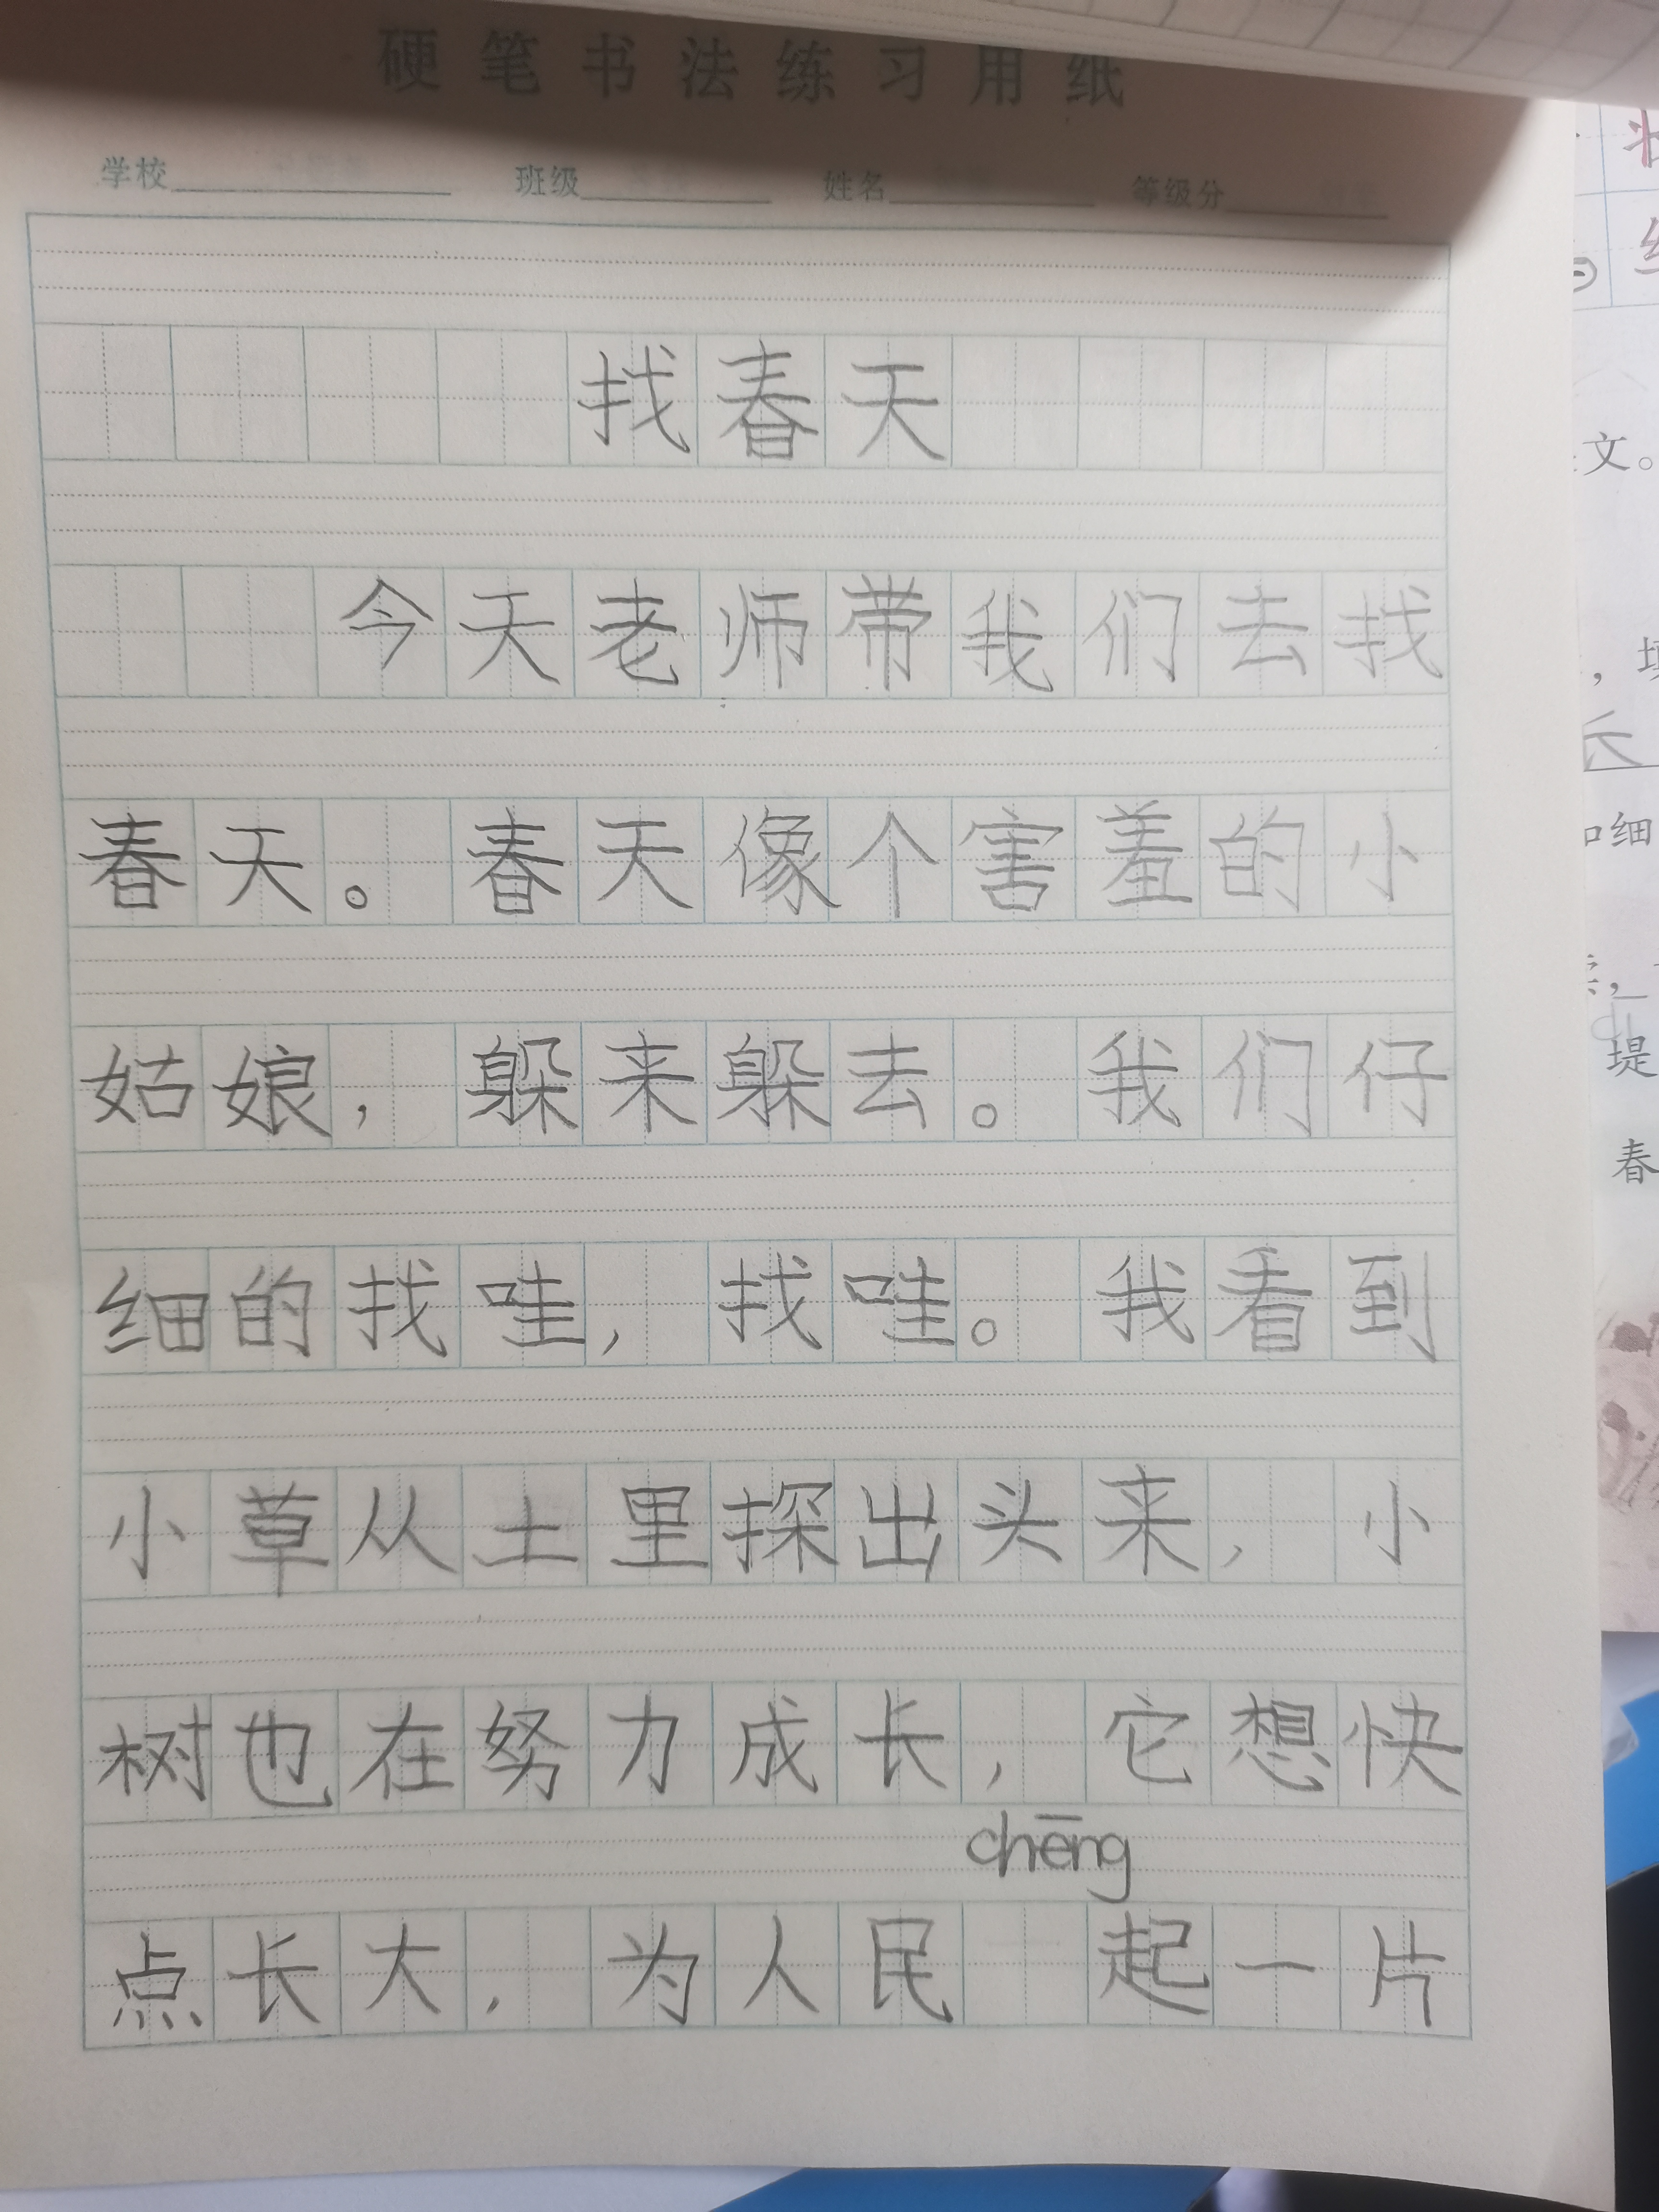 硬笔书法练习用纸
学校 班级 姓名 等级分
找春天
今天老师带我们去找
春天。春天像个害羞的小
姑娘，躲来躲去。我们仔
细的找哇，找哇。我看到
小草从土里探出头来，小
树也在努力成长，它想快
chēng
点长大，为人民 起一片
文。
，填
长
和细
堤
春